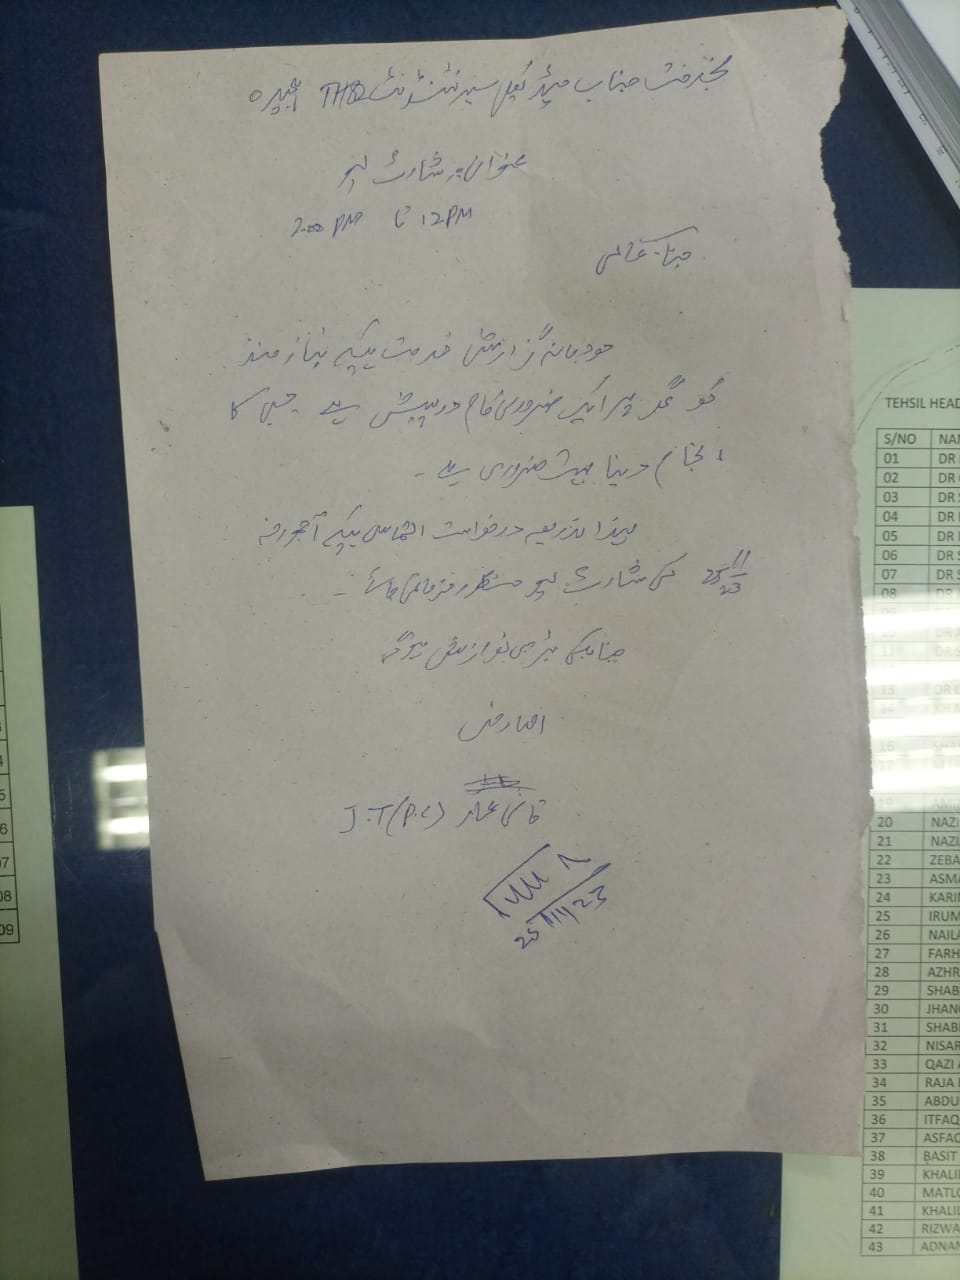 بخدمت جناب میڈیکل سپرنٹنڈنٹ THQ
عنوان:۔ شارٹ لیو
12PM تا 2.00 PM
جناب عالی
مودبانہ گزارش خدمت ہیکہ نیاز مند
کو گھر پر ایک ضروری کام درپیش ہے جس کا
انجام دینا بہت ضروری ہے۔
لہذا بذریعہ درخواست التماس ہیکہ آج مورخہ
25/11/23 کی شارٹ لیو منظور فرمائی جائے۔
جنابکی بڑی نوازش ہوگی
العارض
J.T (P.C)
25/11/23
TEHSIL HEAD
S/NO NAM
01 DR
02 DR
03 DR
04 DR
05 DR
06 DR
07 DR
08 DR
20 NAZI
21 NAZI
22 ZEBA
23 ASMA
24 KARI
25 IRUM
26 NAILA
27 FARH
28 AZHR
29 SHAB
30 JHAN
31 SHABI
32 NISAR
33 QAZI
34 RAJA
35 ABDU
36 ITFAQ
37 ASFAC
38 BASIT
39 KHALI
40 MATLO
41 KHALIL
42 RIZWA
43 ADNAN
08
09